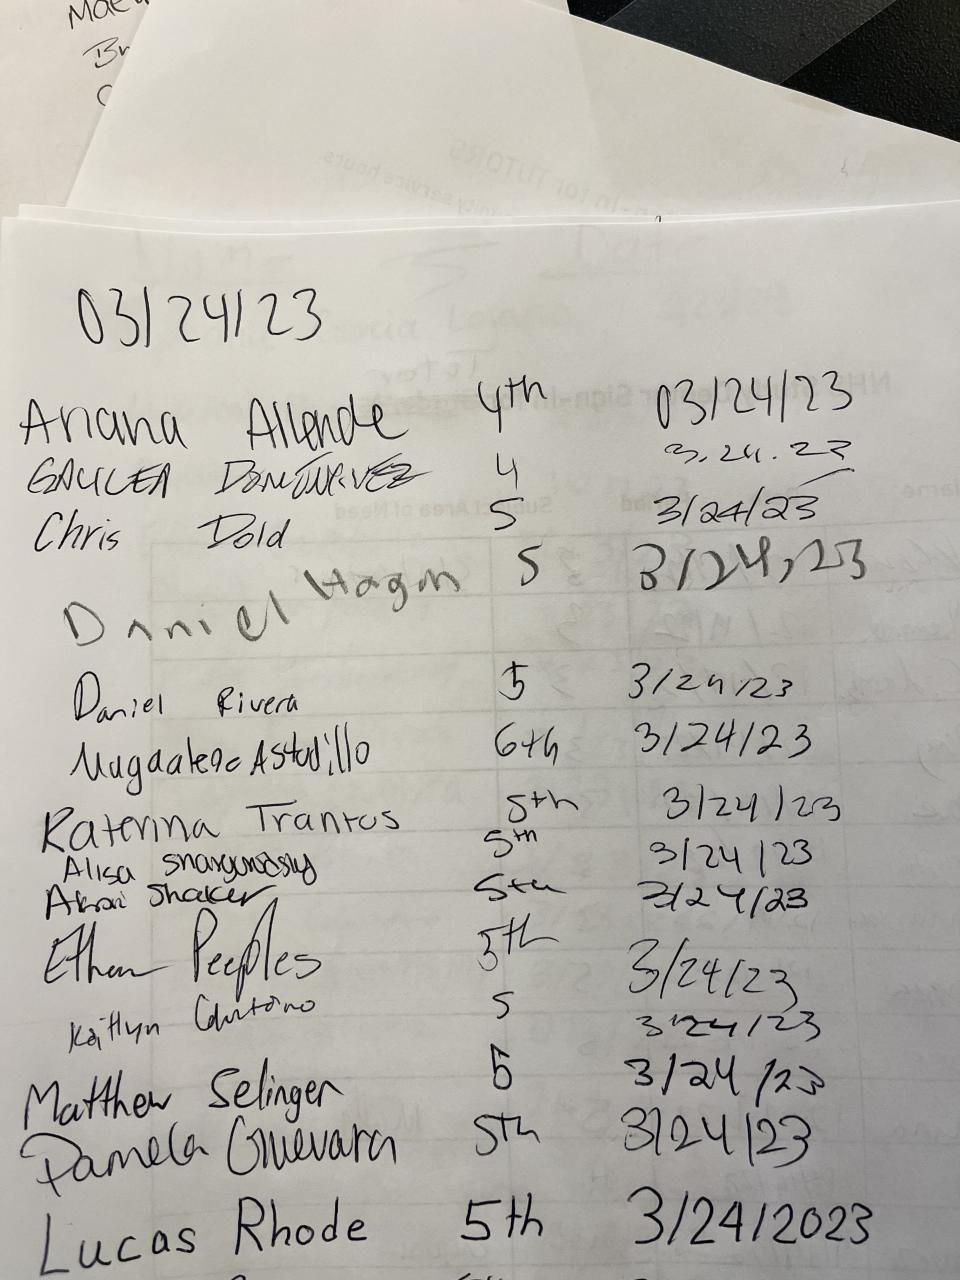 Br
03/24/23
Ariana Allende 4th 03/24/23
GALILEA DOMINGUEZ 4 3.24.23
Chris Dold 5 3/24/23
Daniel Hagen 5 3/24,23
Daniel Rivera 5 3/24/23
Magdalena Astudillo 6th 3/24/23
Katerina Trantos 5th 3/24/23
Alisa 5th 3/24/23
Shaker 5th 3/24/23
Ethan Peeples 5th 3/24/23
Kaitlyn 5 3/24/23
Matthew Selinger 5 3/24/23
Pamela Guevara 5th 3/24/23
Lucas Rhode 5th 3/24/2023